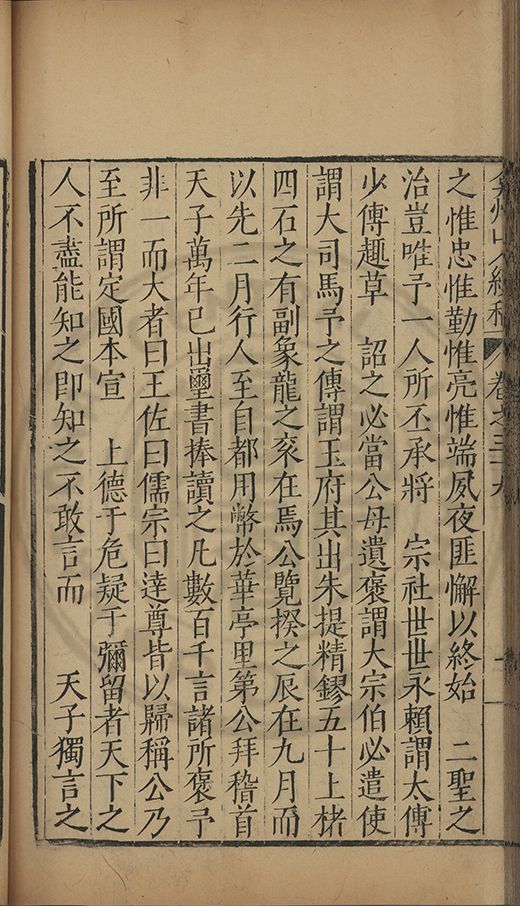 弇州山人續稿 卷之三十九
之惟忠惟勤惟亮惟端夙夜匪懈以終始 二聖之
治豈唯予一人所丕承將 宗社世世永賴謂太傅
少傅趣草 詔之必當公毋遺褒謂大宗伯必遣使
謂大司馬予之傳謂玉府其出朱提精鏐五十上楮
四石之有副象龍之衮在焉公覽揆之辰在九月而
以先二月行人至自都用幣於華亭里第公拜稽首
天子萬年已出璽書捧讀之凡數百千言諸所褒予
非一而大者曰王佐曰儒宗曰達尊皆以歸稱公乃
至所謂定國本宣 上德于危疑于彌留者天下之
人不盡能知之即知之不敢言而 天子獨言之